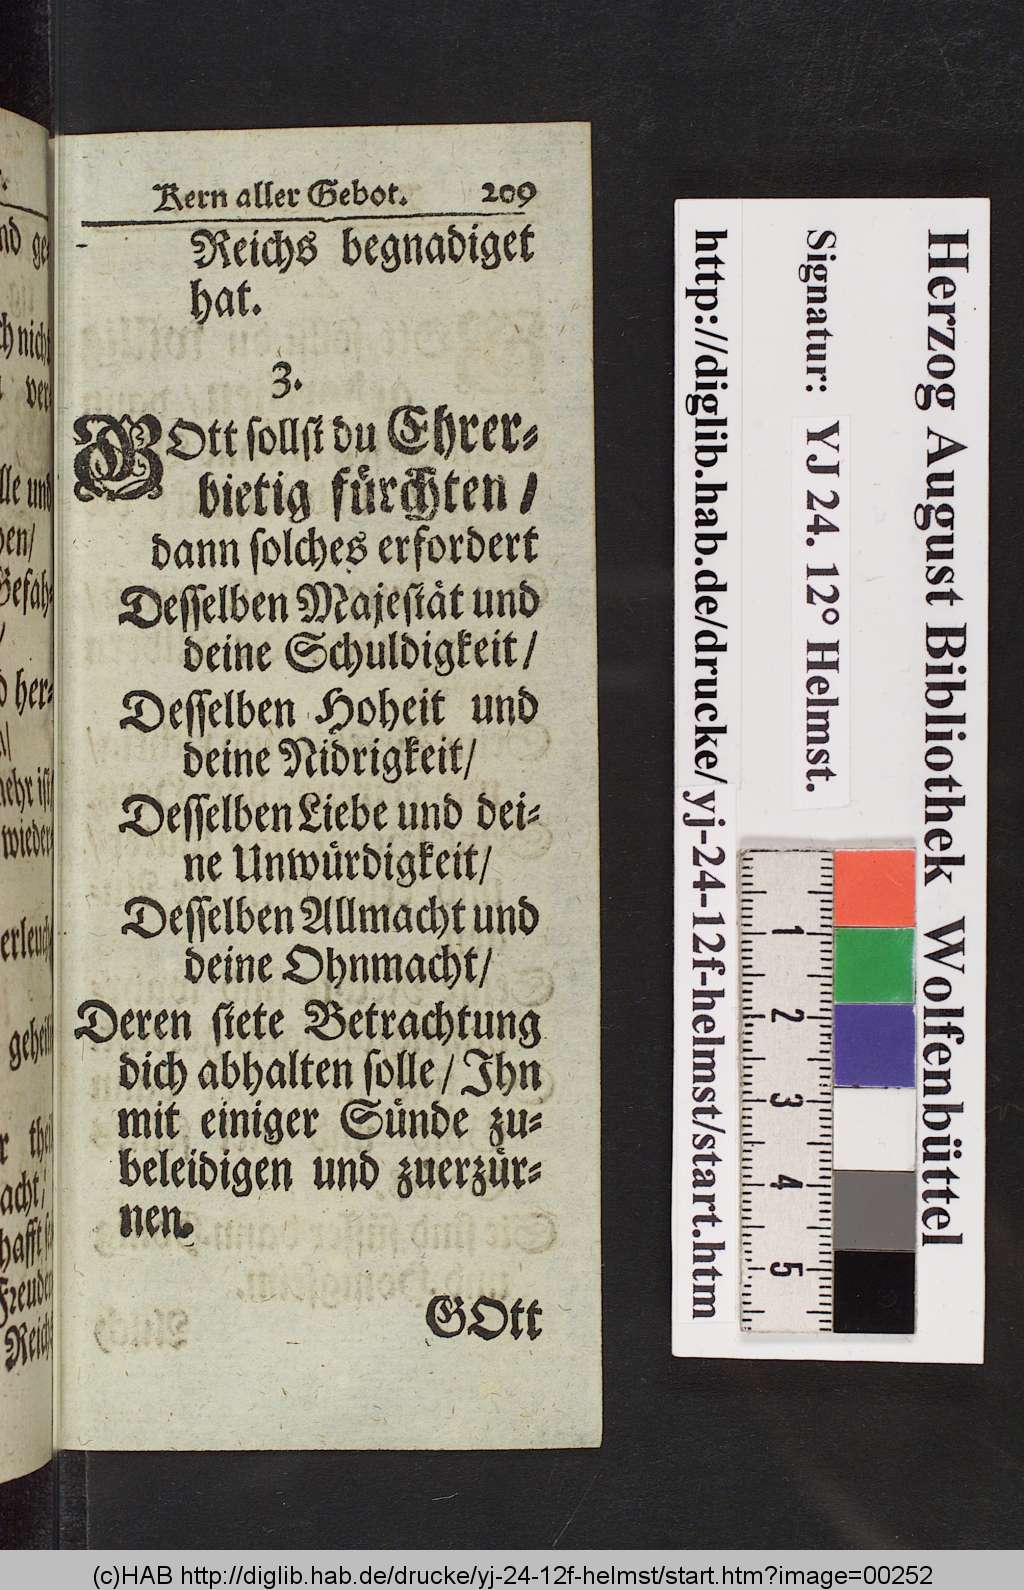 Kern aller Gebot. 209
Reichs begnadiget
hat.
3.
GOtt ſollſt du Ehrer-
bietig fürchten /
dann ſolches erfordert
Deſſelben Majeſtät und
deine Schuldigkeit/
Deſſelben Hoheit und
deine Nidrigkeit/
Deſſelben Liebe und dei-
ne Unwürdigkeit/
Deſſelben Allmacht und
deine Ohnmacht/
Deren ſtete Betrachtung
dich abhalten ſolle / Ihn
mit einiger Sünde zu-
beleidigen und zuerzür-
nen.
GOtt
nd ge-
ch nicht
ver-
lle und
en/
Gefah-
/
d her-
/
mehr iſt/
wieder-
erleuch-
geheil
r theil
acht/
hafft
Freuden
Reichs
Herzog August Bibliothek Wolfenbüttel
Signatur: YJ 24. 12° Helmst.
http://diglib.hab.de/drucke/yj-24-12f-helmst/start.htm
1
2
3
4
5
(c)HAB http://diglib.hab.de/drucke/yj-24-12f-helmst/start.htm?image=00252